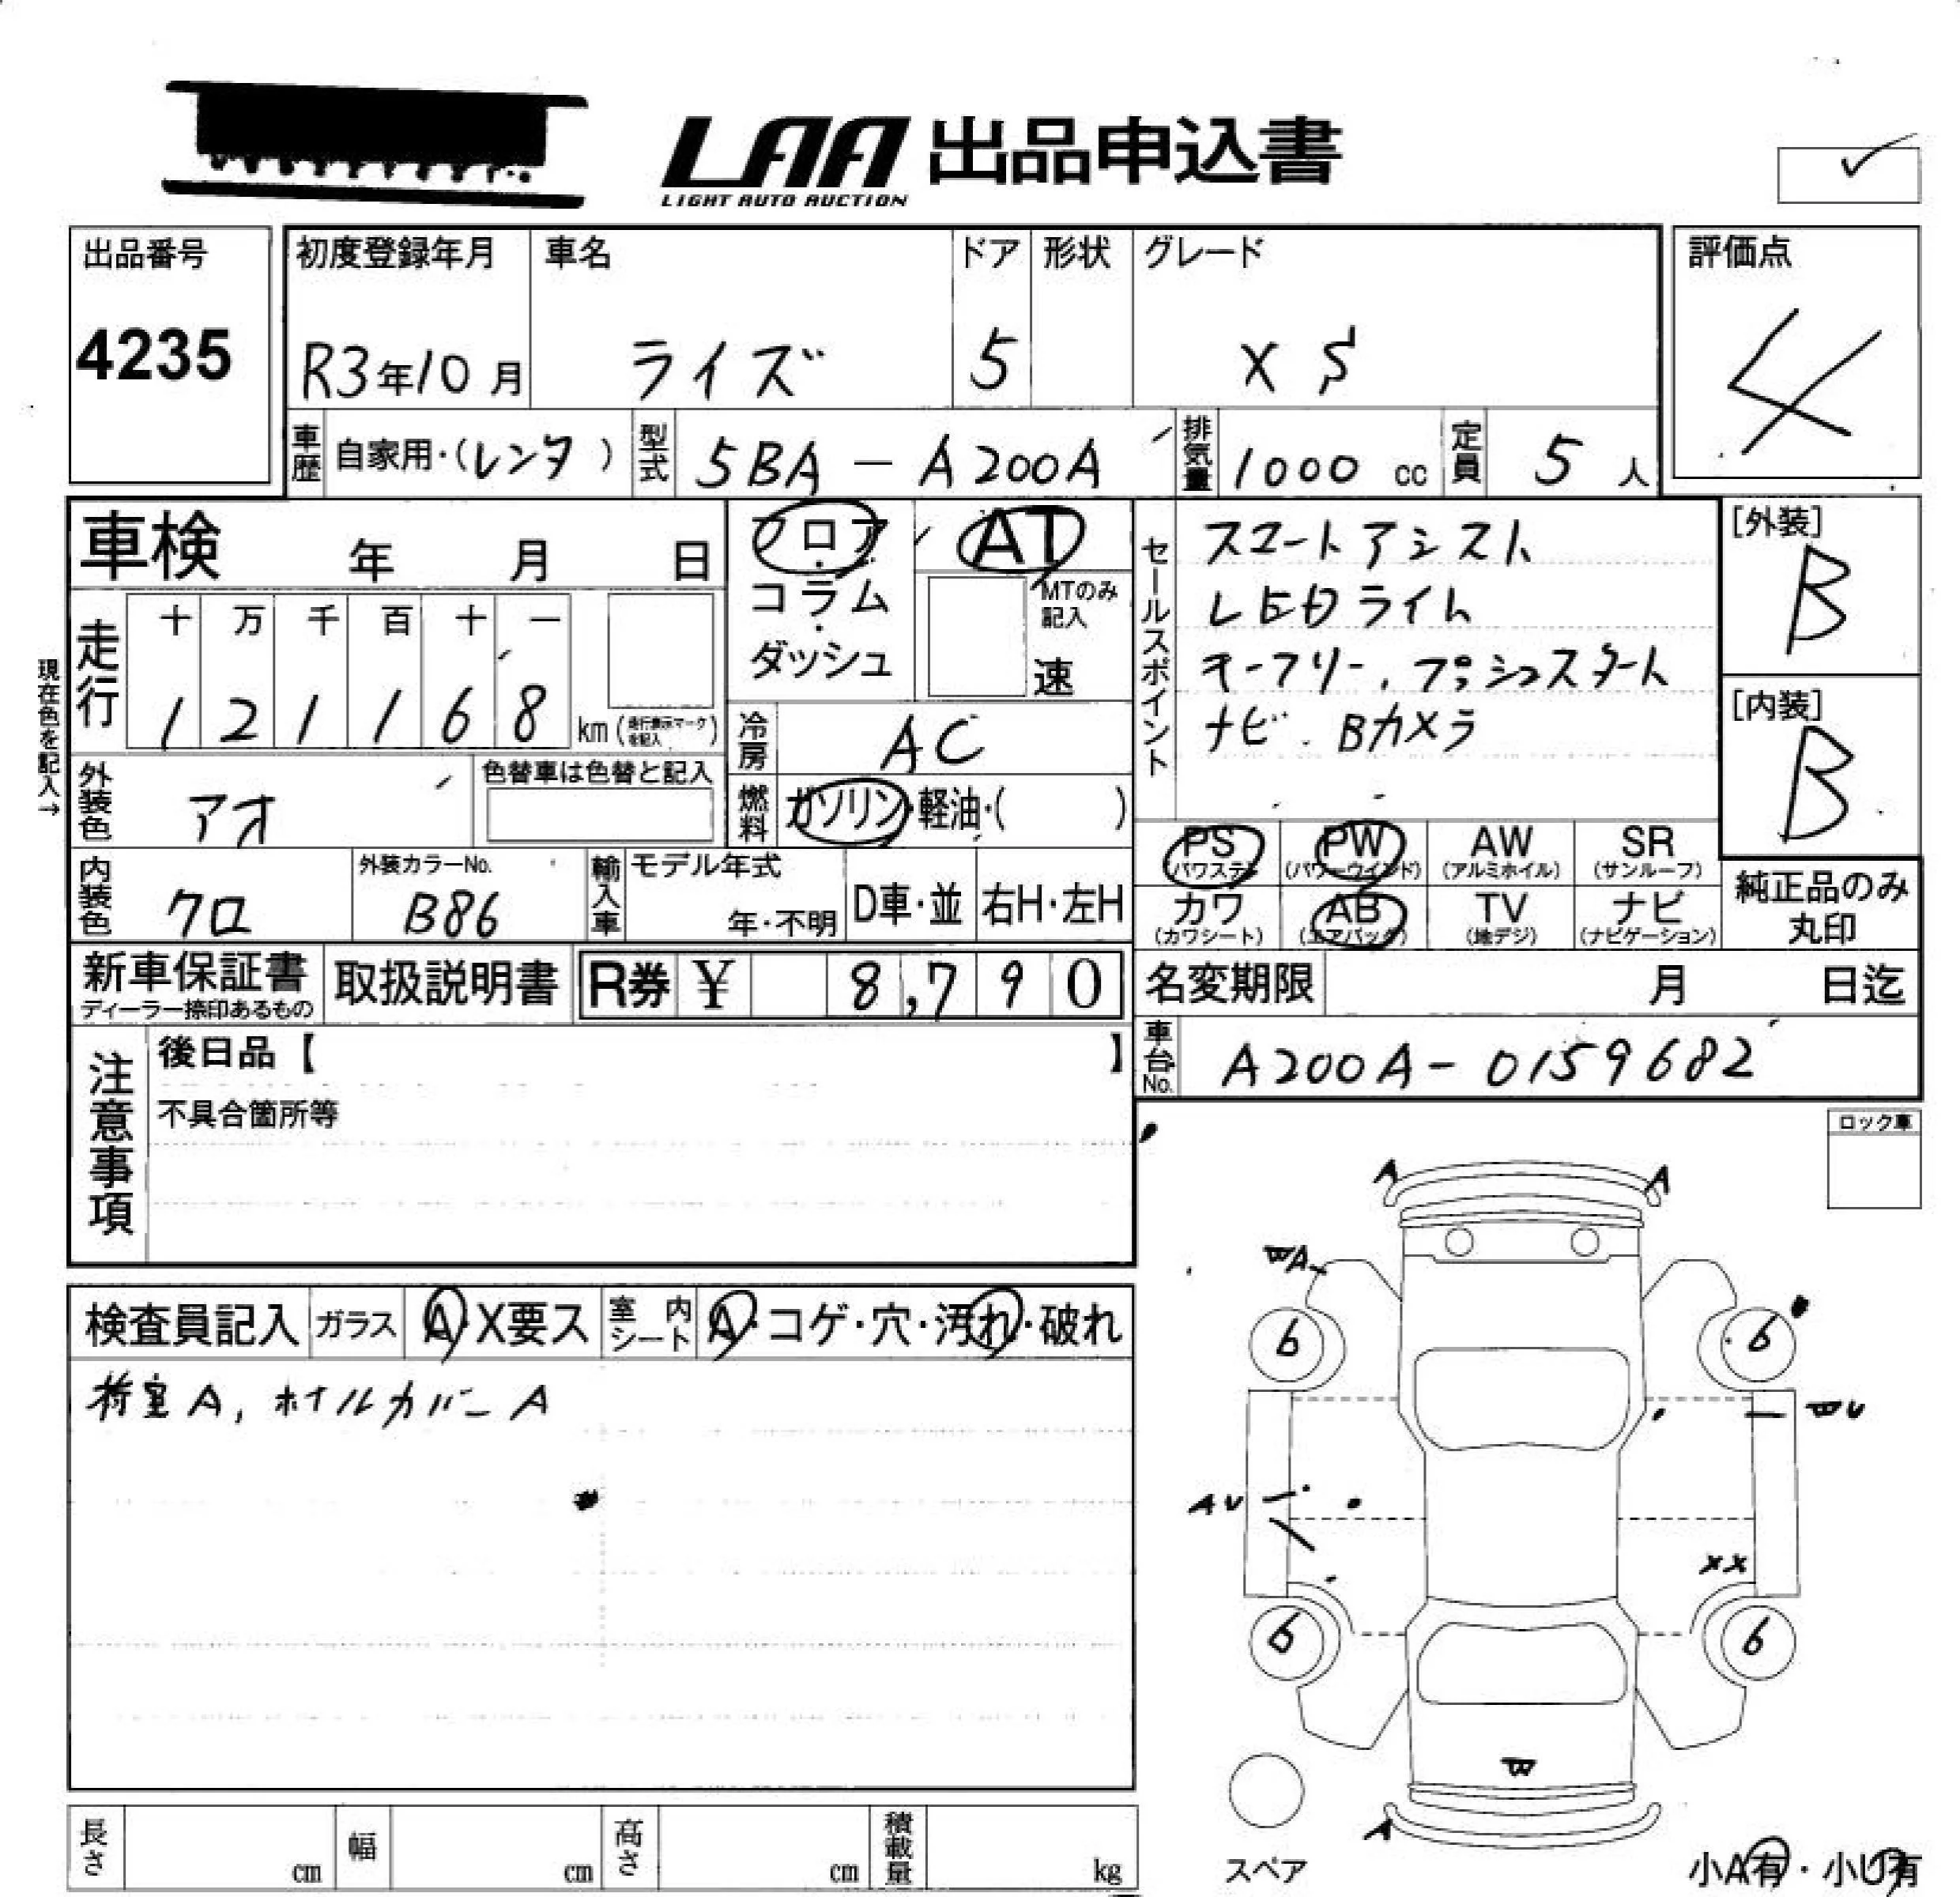 LAA 出品申込書
LIGHT AUTO AUCTION
出品番号
4235
初度登録年月
R3年10月
車名
ライズ
ドア
5
形状
グレード
X S
評価点
4
車歴
自家用・(レンタ)
型式
5BA-A200A
排気量
1000 cc
定員
5人
車検 年 月 日
フロア・コラム・ダッシュ
AT
MTのみ記入
速
セールスポイント
スマートアシスト
LEDライト
キーフリー、プッシュスタート
ナビ、Bカメラ
[外装]
B
[内装]
B
現在色を記入→
走行
十 万 千 百 十 一
1 2 1 1 6 8 km(走行表示マークを記入)
冷房
AC
外装色
アオ
色替車は色替と記入
燃料
ガソリン・軽油・( )
PS(パワステ)
PW(パワーウインド)
AW(アルミホイル)
SR(サンルーフ)
カワ(カワシート)
AB(エアバッグ)
TV(地デジ)
ナビ(ナビゲーション)
純正品のみ丸印
内装色
クロ
外装カラーNo.
B86
輸入車
モデル年式
年・不明
D車・並
右H・左H
新車保証書
ディーラー捺印あるもの
取扱説明書
R券 ¥ 8,790
名変期限 月 日迄
車台No.
A200A-0159682
注意事項
後日品【 】
不具合箇所等
ロック車
検査員記入
ガラス
A・X要ス
室内シート
A・コゲ・穴・汚れ・破れ
荷室A, ホイルカバーA
A
A
BA
6
6
BU
AU
XX
6
6
B
A
スペア
小A有・小U有
長さ cm
幅 cm
高さ cm
積載量 kg